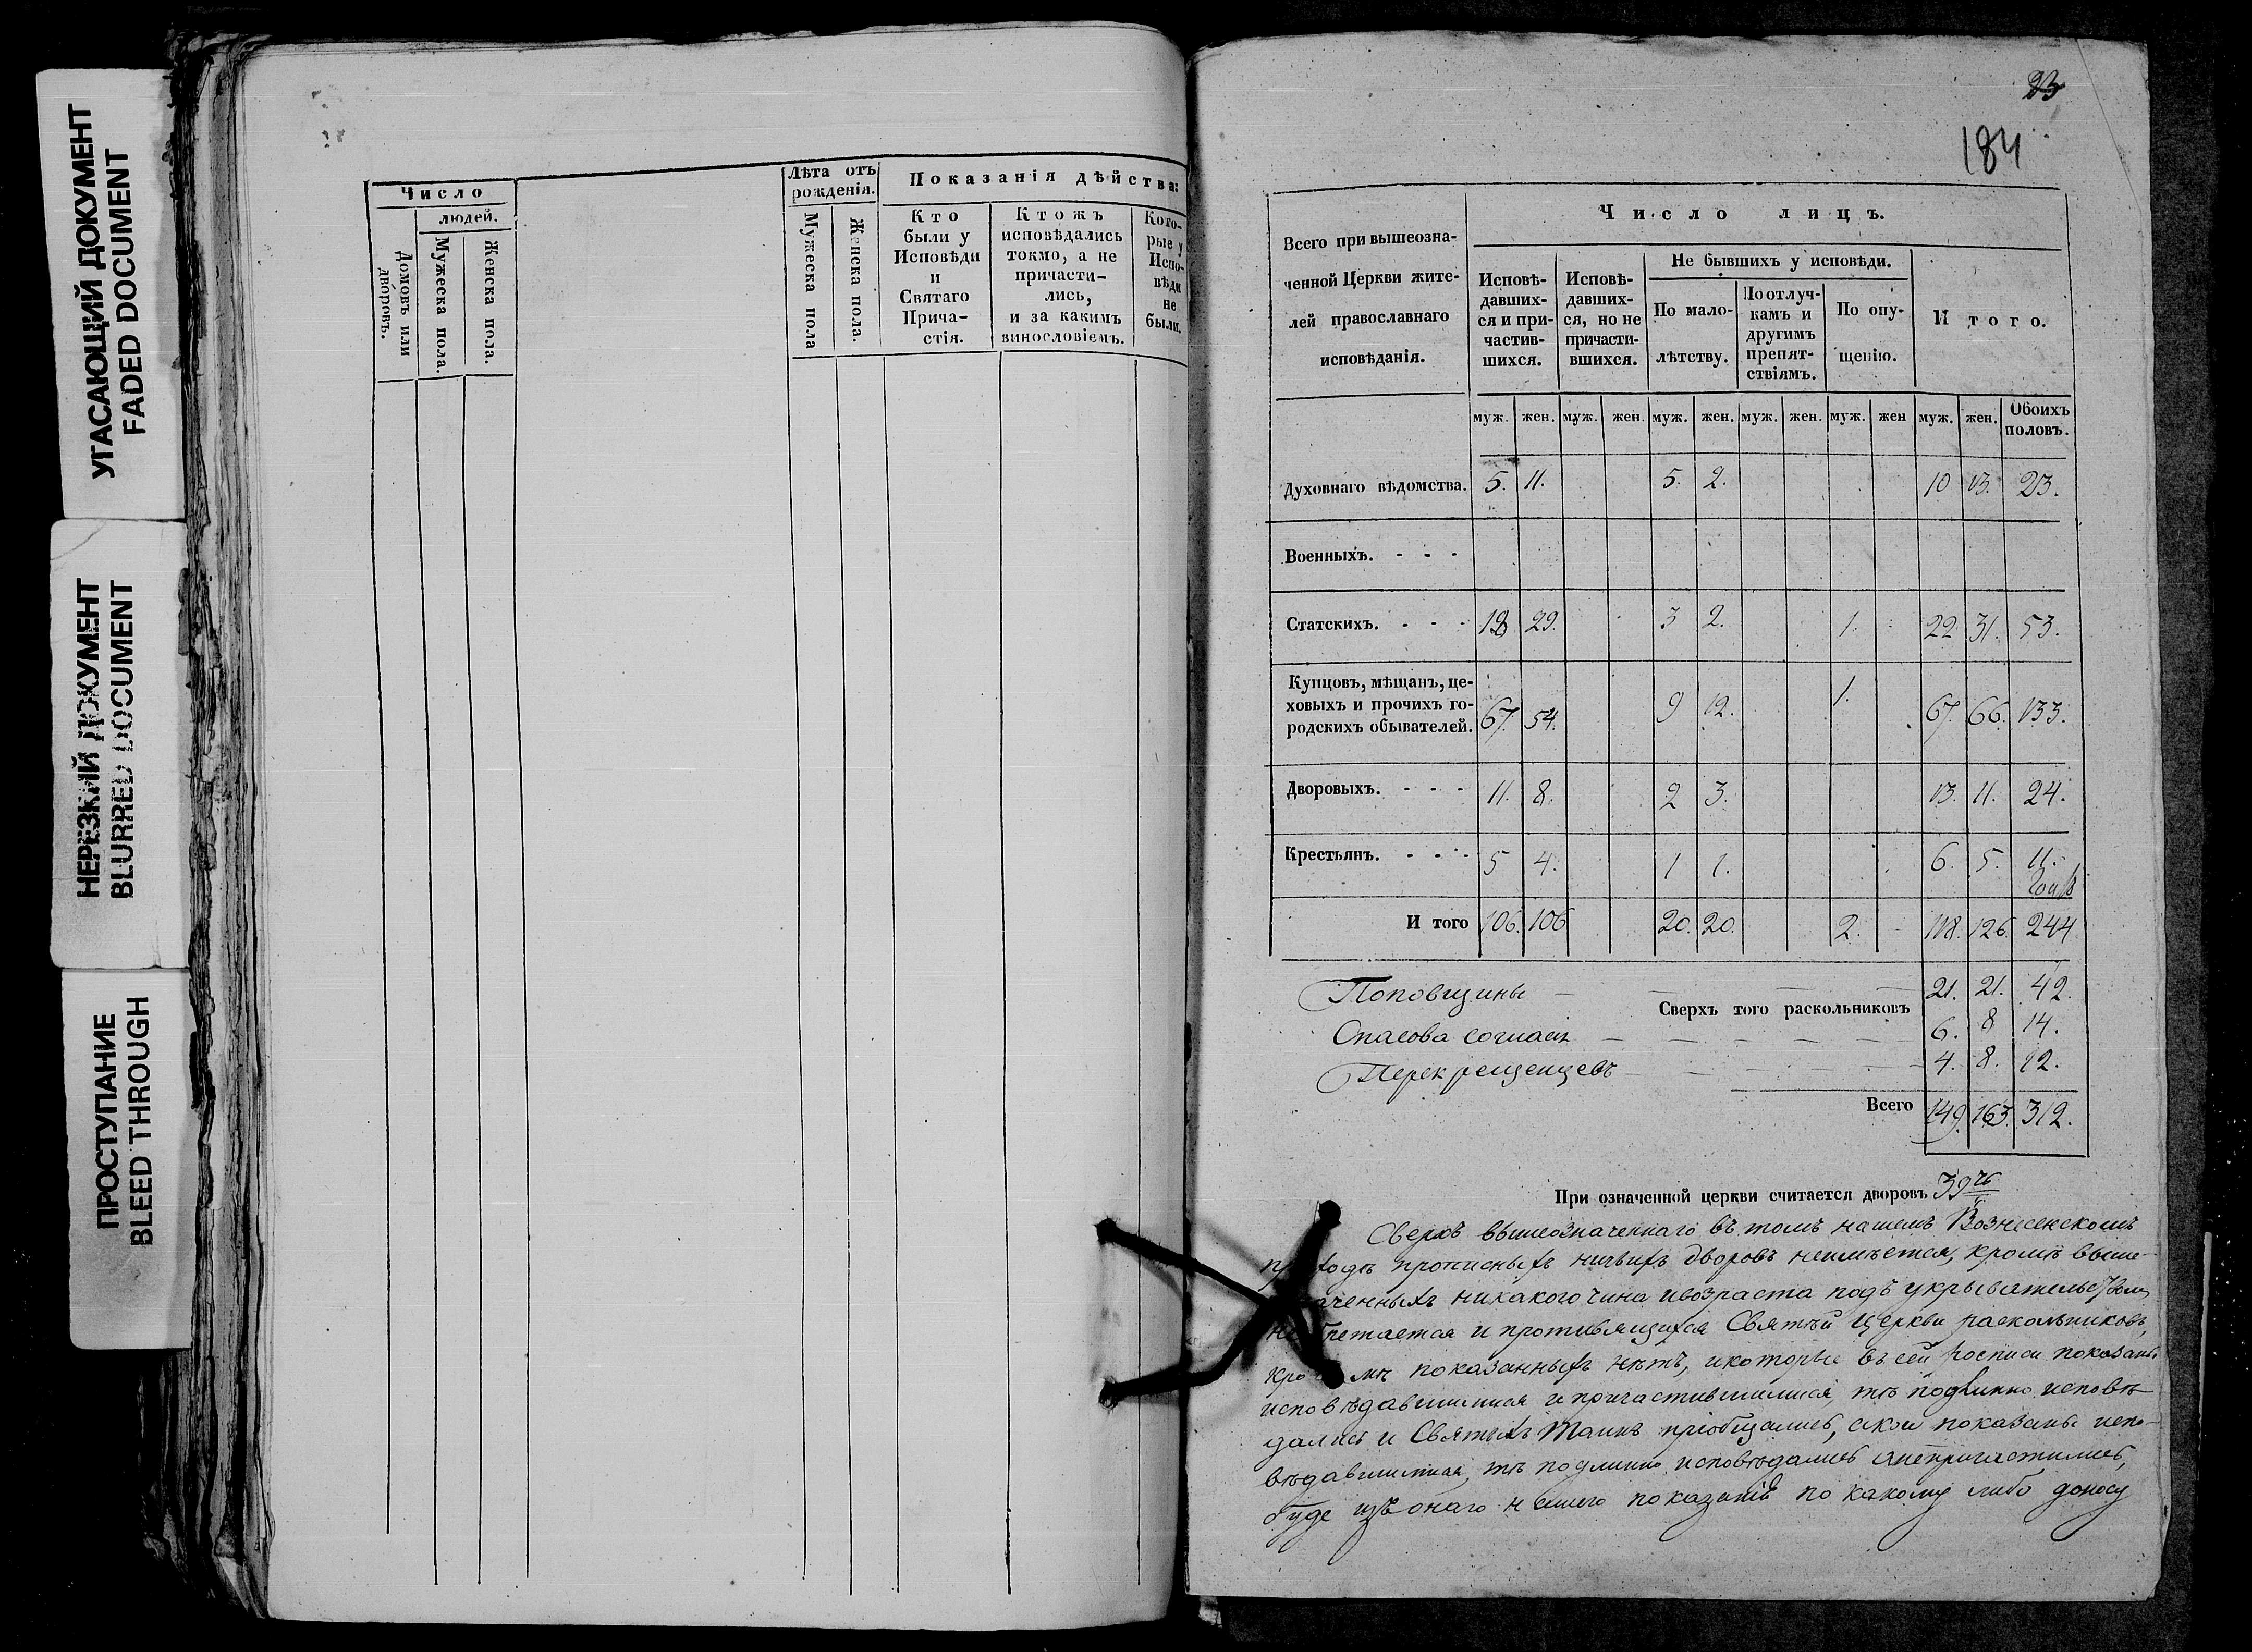 УГАСАЮЩИЙ ДОКУМЕНТ
FADED DOCUMENT
НЕРЕЗКИЙ ДОКУМЕНТ
BLURRED DOCUMENT
ПРОСТУПАНИЕ
BLEED THROUGH
Число
людей.
Домовъ или дворовъ.
Мужеска пола.
Женска пола.
Лѣта отъ рожденія.
Мужеска пола
Женска пола.
Показанія дѣйства:
Кто
были у
Исповѣди
и
Святаго
Прича-
стія.
Ктожъ
исповѣдались
токмо, а не
причасти-
лись,
и за какимъ
винословіемъ.
Кото-
рые у
Испо-
вѣди
не
были.
184
Всего при вышеозна-
ченной Церкви жите-
лей православнаго
исповѣданія.
Число лицъ.
Исповѣ-
давших-
ся и при-
частив-
шихся.
Исповѣ-
давших-
ся, но не
причасти-
вшихся.
Не бывшихъ у исповѣди.
По мало-
лѣтству.
По отлуч-
камъ и
другимъ
препят-
ствіямъ.
По опу-
щенію.
И того.
муж. жен. муж. жен. муж. жен. муж. жен. муж. жен муж. жен. Обоихъ половъ.
Духовнаго вѣдомства. 5. 11. 5. 2. 10 13. 23.
Военныхъ. - - -
Статскихъ. - - - 18 29. 3 2. 1. 22 31. 53.
Купцовъ, мѣщанъ, це-
ховыхъ и прочихъ го-
родскихъ обывателей. 67. 54. 9 12. 1. 67. 66. 133.
Дворовыхъ. - - - 11. 8. 2 3. 13. 11. 24.
Крестьянъ. - - - 5 4. 1 1. 6. 5. 11.
И того 106. 106 20. 20. 2. 118. 126. 244
Поповщины 21. 21. 42.
Сверхъ того раскольниковъ
Спасова согласія 6. 8 14.
Перекрещенцевъ 4. 8. 12.
Всего 149. 163. 312.
При означенной церкви считается дворовъ 39
Сверхъ вышеозначеннаго въ томъ нашемъ Вознесенскомъ
прописныхъ ничьихъ дворовъ неимѣется, кромѣ выше-
никакого чина и возраста подъ укрывательствомъ
и противящихся Святѣй Церкви раскольниковъ,
показанныхъ нѣтъ, и которые въ сей росписи показаны
исповѣдавшимися и причастившимися, тѣ подлинно исповѣ-
дались и Святыхъ Таинъ пріобщались, а кои показаны испо-
вѣдавшимися, тѣ подлинно исповѣдались а непричастились,
буде изъ онаго нашего показанія по какому либо доносу